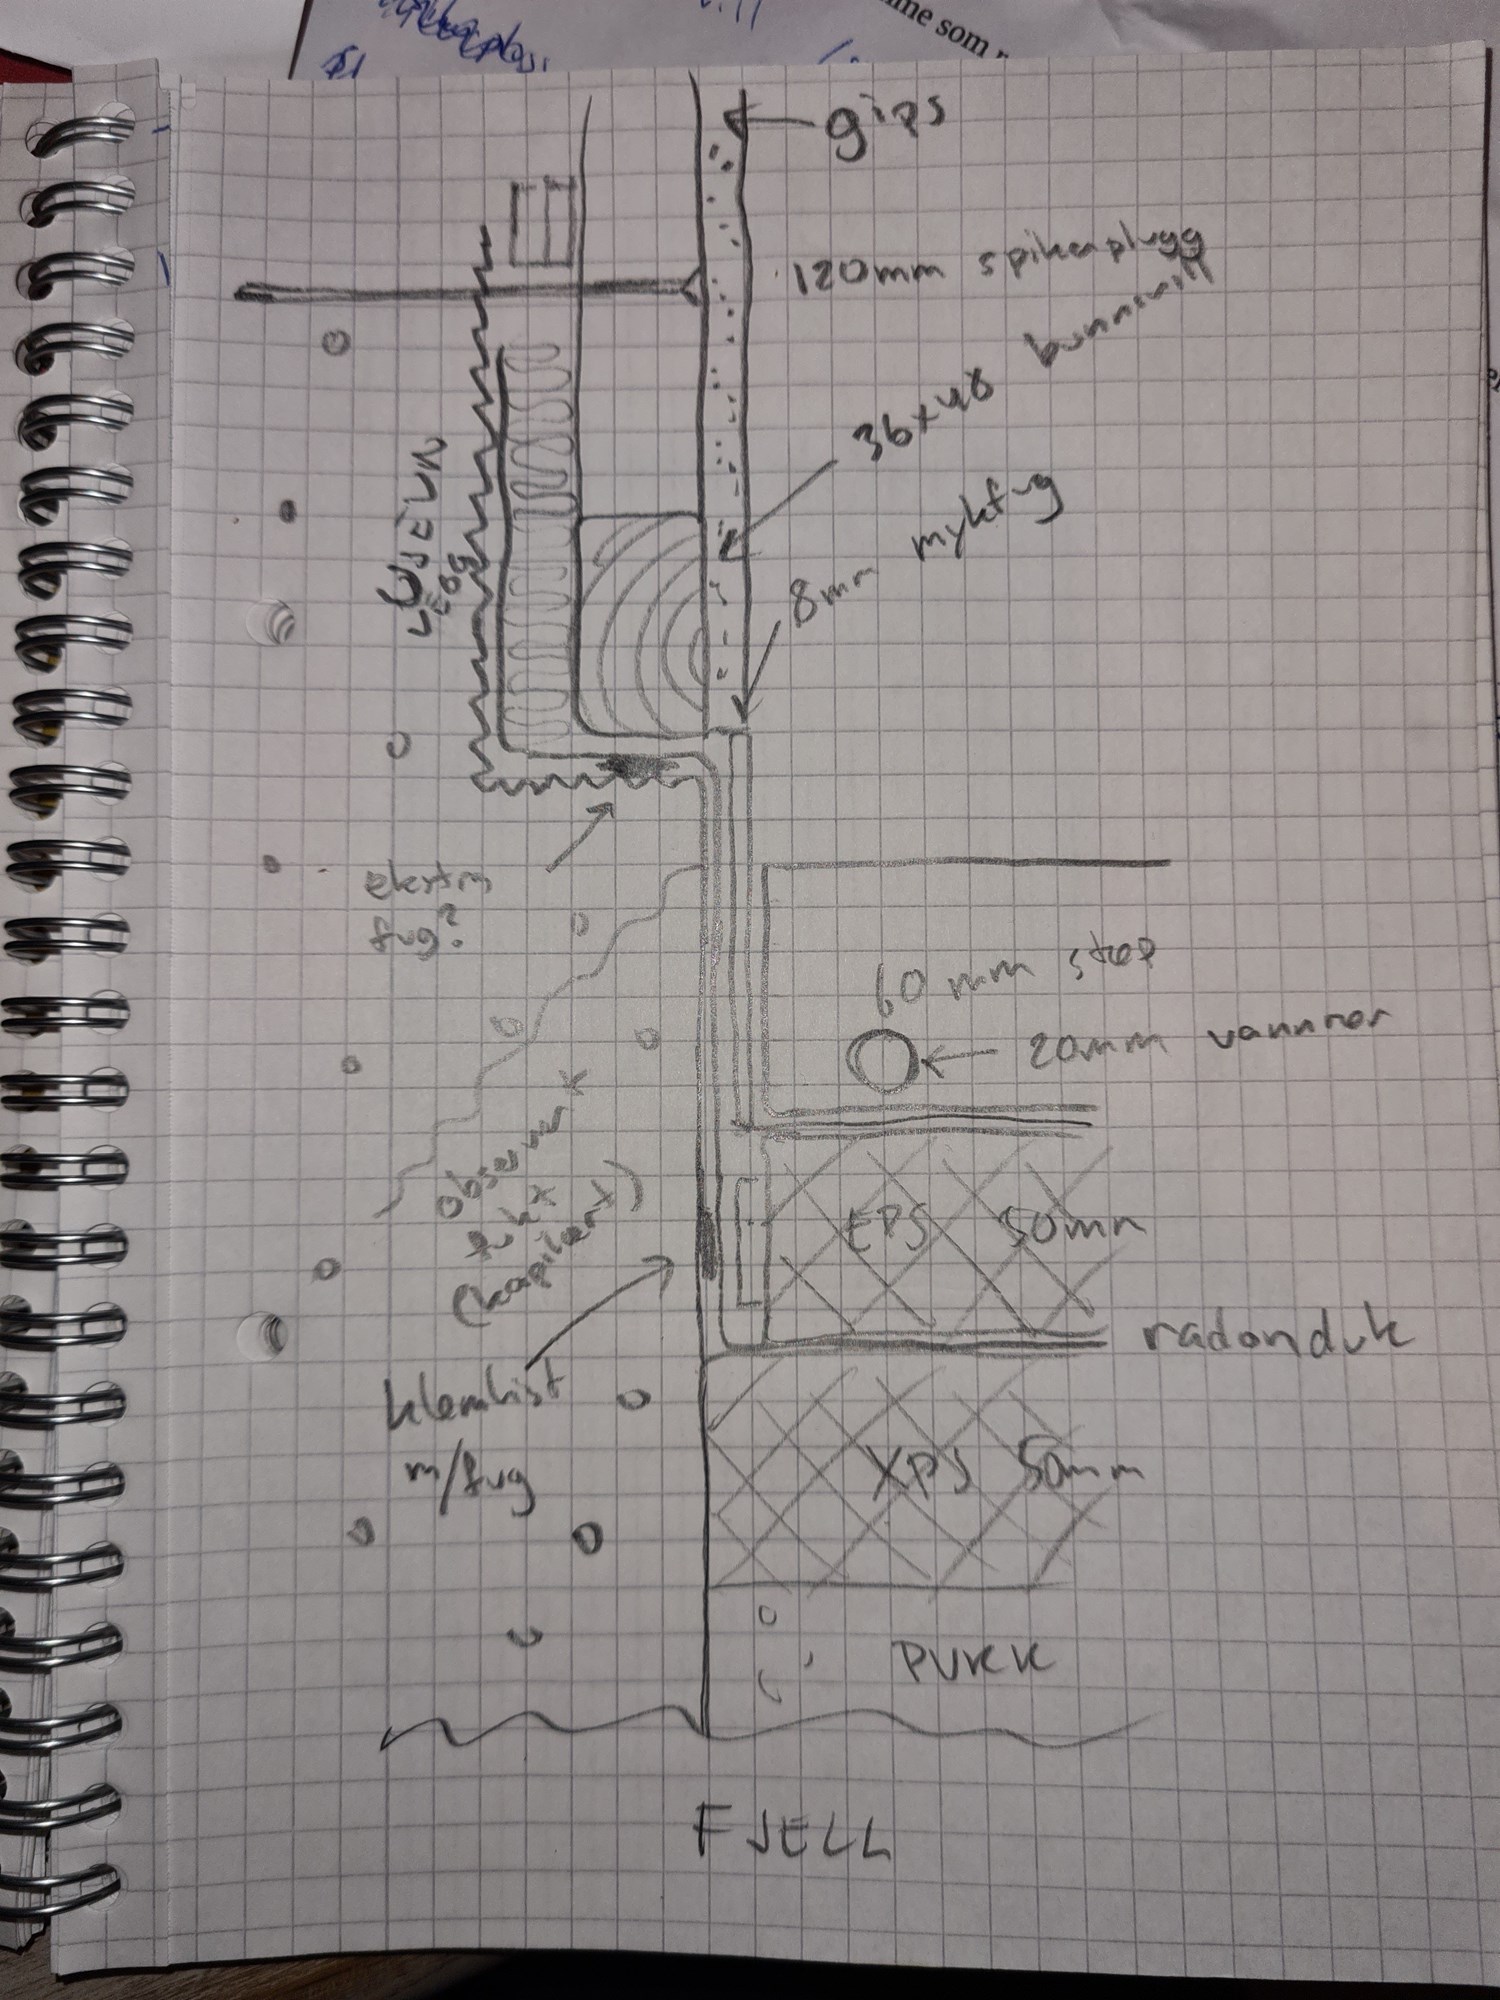 me som
gips
120mm spikerplugg
36x48 bunnsvill
8mm mykfug
ekstra
fug?
60mm støp
20mm vannrør
observert
fukt
(kapilært)
EPS 50mm
radonduk
klemlist
m/fug
XPS 50mm
PUKK
FJELL